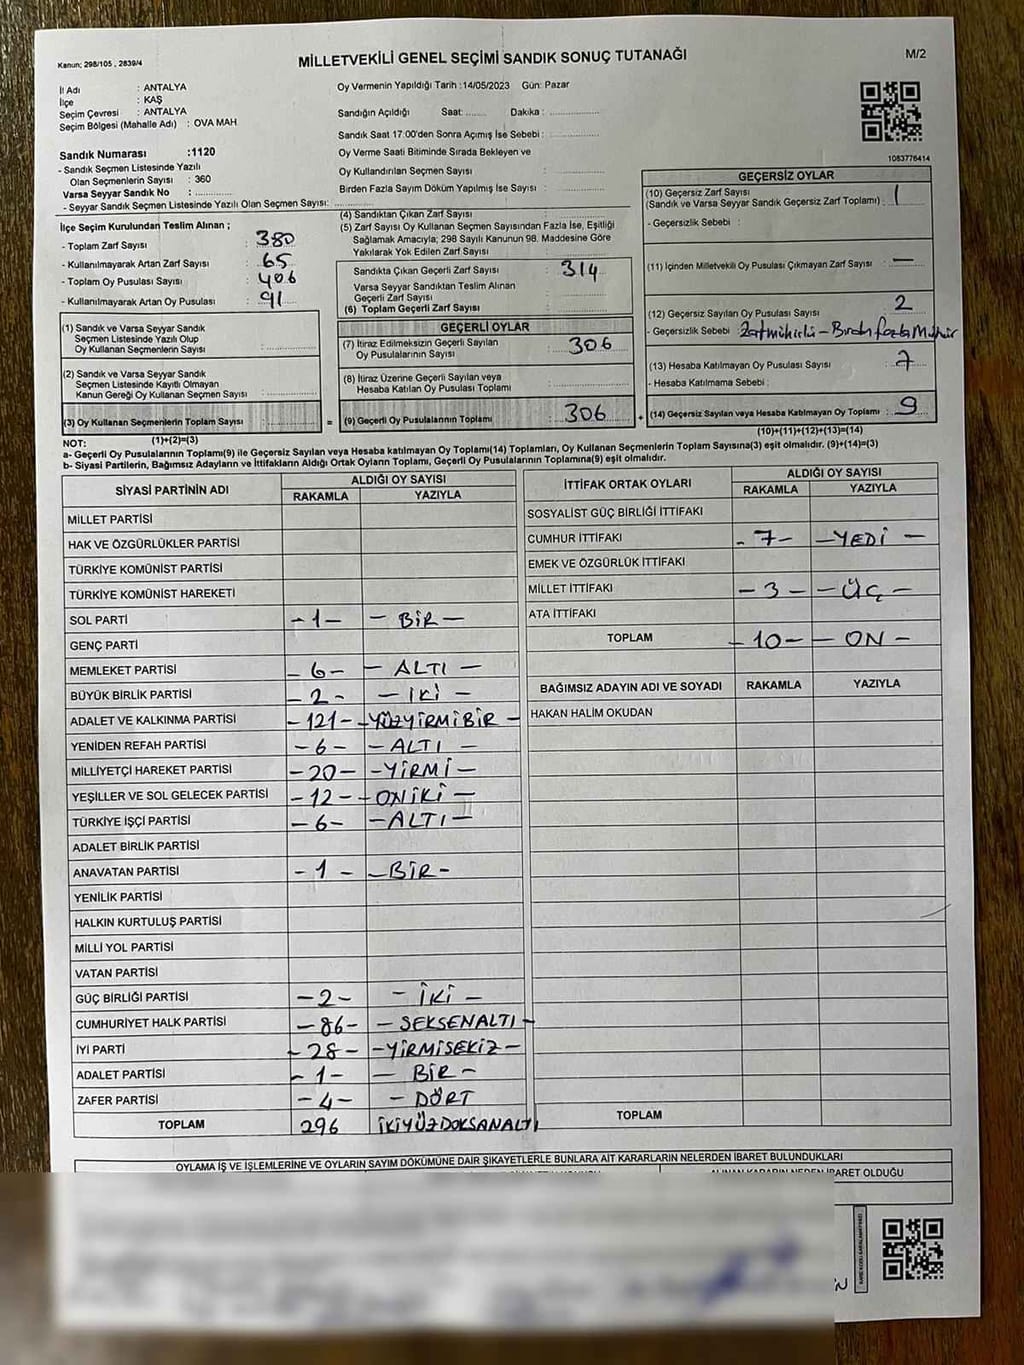 Kanun; 298/105 , 2839/4
MİLLETVEKİLİ GENEL SEÇİMİ SANDIK SONUÇ TUTANAĞI
M/2
İl Adı : ANTALYA
İlçe : KAŞ
Seçim Çevresi : ANTALYA
Seçim Bölgesi (Mahalle Adı) : OVA MAH
Sandık Numarası :1120
- Sandık Seçmen Listesinde Yazılı
Olan Seçmenlerin Sayısı : 360
Varsa Seyyar Sandık No :
- Seyyar Sandık Seçmen Listesinde Yazılı Olan Seçmen Sayısı:
Oy Vermenin Yapıldığı Tarih :14/05/2023 Gün: Pazar
Sandığın Açıldığı Saat: Dakika :
Sandık Saat 17:00'den Sonra Açımış İse Sebebi :
Oy Verme Saati Bitiminde Sırada Bekleyen ve
Oy Kullandırılan Seçmen Sayısı :
Birden Fazla Sayım Döküm Yapılmış İse Sayısı :
1083776414
İlçe Seçim Kurulundan Teslim Alınan ;
- Toplam Zarf Sayısı : 380
- Kullanılmayarak Artan Zarf Sayısı : 65
- Toplam Oy Pusulası Sayısı : 406
- Kullanılmayarak Artan Oy Pusulası : 91
(1) Sandık ve Varsa Seyyar Sandık
Seçmen Listesinde Yazılı Olup
Oy Kullanan Seçmenlerin Sayısı :
(2) Sandık ve Varsa Seyyar Sandık
Seçmen Listesinde Kayıtlı Olmayan
Kanun Gereği Oy Kullanan Seçmen Sayısı :
(3) Oy Kullanan Seçmenlerin Toplam Sayısı :
(1)+(2)=(3)
(4) Sandıktan Çıkan Zarf Sayısı :
(5) Zarf Sayısı Oy Kullanan Seçmen Sayısından Fazla İse, Eşitliği
Sağlamak Amacıyla; 298 Sayılı Kanunun 98. Maddesine Göre
Yakılarak Yok Edilen Zarf Sayısı :
Sandıkta Çıkan Geçerli Zarf Sayısı : 314
Varsa Seyyar Sandıktan Teslim Alınan
Geçerli Zarf Sayısı :
(6) Toplam Geçerli Zarf Sayısı :
GEÇERLİ OYLAR
(7) İtiraz Edilmeksizin Geçerli Sayılan
Oy Pusulalarının Sayısı : 306
(8) İtiraz Üzerine Geçerli Sayılan veya
Hesaba Katılan Oy Pusulası Toplamı :
= (9) Geçerli Oy Pusulalarının Toplamı : 306 +
GEÇERSİZ OYLAR
(10) Geçersiz Zarf Sayısı
(Sandık ve Varsa Seyyar Sandık Geçersiz Zarf Toplamı) : 1
- Geçersizlik Sebebi :
(11) İçinden Milletvekili Oy Pusulası Çıkmayan Zarf Sayısı : —
(12) Geçersiz Sayılan Oy Pusulası Sayısı : 2
- Geçersizlik Sebebi :
(13) Hesaba Katılmayan Oy Pusulası Sayısı : 7
- Hesaba Katılmama Sebebi :
(14) Geçersiz Sayılan veya Hesaba Katılmayan Oy Toplamı : 9
(10)+(11)+(12)+(13)=(14)
NOT:
a- Geçerli Oy Pusulalarının Toplamı(9) ile Geçersiz Sayılan veya Hesaba katılmayan Oy Toplamı(14) Toplamları, Oy Kullanan Seçmenlerin Toplam Sayısına(3) eşit olmalıdır. (9)+(14)=(3)
b- Siyasi Partilerin, Bağımsız Adayların ve İttifakların Aldığı Ortak Oyların Toplamı, Geçerli Oy Pusulalarının Toplamına(9) eşit olmalıdır.
SİYASİ PARTİNİN ADI ALDIĞI OY SAYISI
RAKAMLA YAZIYLA
MİLLET PARTİSİ
HAK VE ÖZGÜRLÜKLER PARTİSİ
TÜRKİYE KOMÜNİST PARTİSİ
TÜRKİYE KOMÜNİST HAREKETİ
SOL PARTİ -1- - BİR -
GENÇ PARTİ
MEMLEKET PARTİSİ - 6 - - ALTI -
BÜYÜK BİRLİK PARTİSİ - 2 - - İKİ -
ADALET VE KALKINMA PARTİSİ - 121 - - YÜZYİRMİBİR -
YENİDEN REFAH PARTİSİ - 6 - - ALTI -
MİLLİYETÇİ HAREKET PARTİSİ - 20 - - YİRMİ -
YEŞİLLER VE SOL GELECEK PARTİSİ - 12 - - ONİKİ -
TÜRKİYE İŞÇİ PARTİSİ - 6 - - ALTI -
ADALET BİRLİK PARTİSİ
ANAVATAN PARTİSİ - 1 - - BİR -
YENİLİK PARTİSİ
HALKIN KURTULUŞ PARTİSİ
MİLLİ YOL PARTİSİ
VATAN PARTİSİ
GÜÇ BİRLİĞİ PARTİSİ - 2 - - İKİ -
CUMHURİYET HALK PARTİSİ - 86 - - SEKSENALTI -
İYİ PARTİ - 28 - - YİRMİSEKİZ -
ADALET PARTİSİ - 1 - - BİR -
ZAFER PARTİSİ - 4 - - DÖRT
TOPLAM 296 İKİYÜZDOKSANALTI
İTTİFAK ORTAK OYLARI ALDIĞI OY SAYISI
RAKAMLA YAZIYLA
SOSYALİST GÜÇ BİRLİĞİ İTTİFAKI
CUMHUR İTTİFAKI - 7 - - YEDİ -
EMEK VE ÖZGÜRLÜK İTTİFAKI
MİLLET İTTİFAKI - 3 - - ÜÇ -
ATA İTTİFAKI
TOPLAM - 10 - - ON -
BAĞIMSIZ ADAYIN ADI VE SOYADI RAKAMLA YAZIYLA
HAKAN HALİM OKUDAN
TOPLAM
OYLAMA İŞ VE İŞLEMLERİNE VE OYLARIN SAYIM DÖKÜMÜNE DAİR ŞİKAYETLERLE BUNLARA AİT KARARLARIN NELERDEN İBARET BULUNDUKLARI
ALINAN KARARIN NEDEN İBARET OLDUĞU